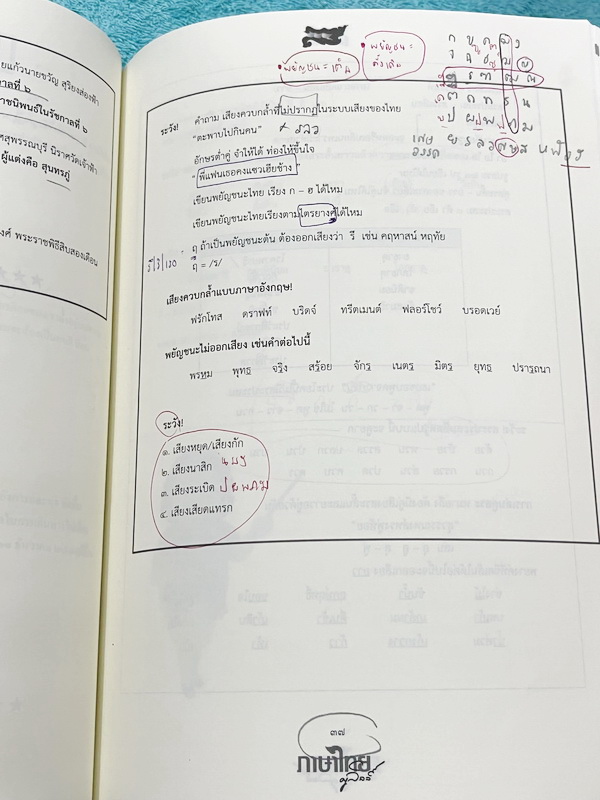 ยแก้วนายขวัญ สุริยงส่องฟ้า
าลที่ ๒
ราชนิพนธ์ในรัชกาลที่ ๖
หสุพรรณบุรี นิราศวัดเจ้าฟ้า
ผู้แต่งคือ สุนทรภู่
งศ์ พระราชพิธีสิบสองเดือน
พยัญชนะ = เดิม
ระวัง! คำถาม เสียงควบกล้ำที่ไม่ปรากฏในระบบเสียงของไทย
"ตะพาบไปกินคน"
อักษรต่ำคู่ จำให้ได้ ท่องให้ขึ้นใจ
"พี่แฟนเธอคงแซวเฮียช้าง"
เขียนพยัญชนะไทย เรียง ก - ฮ ได้ไหม
เขียนพยัญชนะไทยเรียงตามไตรยางศ์ได้ไหม
ฤ ถ้าเป็นพยัญชนะต้น ต้องออกเสียงว่า รึ เช่น คฤหาสน์ หฤทัย
ฤ = /ร/
เสียงควบกล้ำแบบภาษาอังกฤษ!
ฟรักโทส ดราฟท์ บริดจ์ ทรีตเมนต์ ฟลอร์โชว์ บรอดเวย์
พยัญชนะไม่ออกเสียง เช่นคำต่อไปนี้
พรหม พุทธ จริง สร้อย จักร เนตร มิตร ยุทธ ปรารถนา
ระวัง!
๑. เสียงหยุด/เสียงกัก
๒. เสียงนาสิก น ม ง
๓. เสียงระเบิด
๔. เสียงเสียดแทรก
๓๗
ภาษาไทย